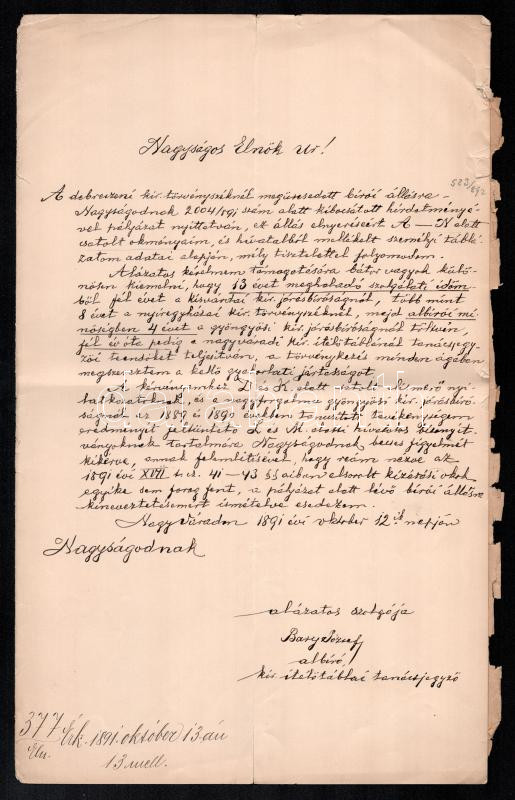 Nagyságos Elnök Ur!
523/892
A debreczeni kir. törvényszéknél megüresedett birói állásra
Nagyságodnak 2004/891 szám alatt kibocsátott hirdetményé-
vel pályázat nyittatván, ez állás elnyeréseért A–N alatt
csatolt okmányaim, és hivatalból mellékelt személyi táblá-
zatom adatai alapján, mély tisztelettel folyamodom.
Alázatos kérelmem támogatására bátor vagyok külö-
nösen kiemelni, hogy 13 évet meghaladó szolgálati időm-
ből fél évet a kisvárdai kir. járásbiróságnál, több mint
8 évet a nyiregyházai kir. törvényszéknél, majd albirói mi-
nőségben 4 évet a gyöngyösi kir. járásbiróságnál töltvén,
fél év óta pedig a nagyváradi kir. itélőtáblánál tanácsjegy-
zői teendőket teljesitvén, a törvénykezés minden ágában
megszereztem a kellő gyakorlati jártasságot.
A kérvényemhez D. és K. alatt csatolt elismerő nyi-
latkozatoknak, és a nagyforgalmu gyöngyösi kir. járásbiró-
ságnál az 1889 és 1890 években tanusitott tevékenységem
eredményét feltüntető L. és M. alatti hivatalos bizonyit-
ványoknak tartalmára Nagyságodnak becses figyelmét
kikérve, annak felemlitésével, hogy reám nézve az
1891 évi XVII t.cz. 41–43 §§aiban elsorolt kizárási okok
egyike sem forog fent, a pályázat alatt lévő birói állásra
kineveztetésemért ismételve esedezem.
Nagy Váradon 1891 évi oktober 12ik napján
Nagyságodnak
alázatos szolgája
Bary József
albiró,
kir. itélőtáblai tanácsjegyző
377 Érk. 1891. október 13-án
Eln. 13 mell.